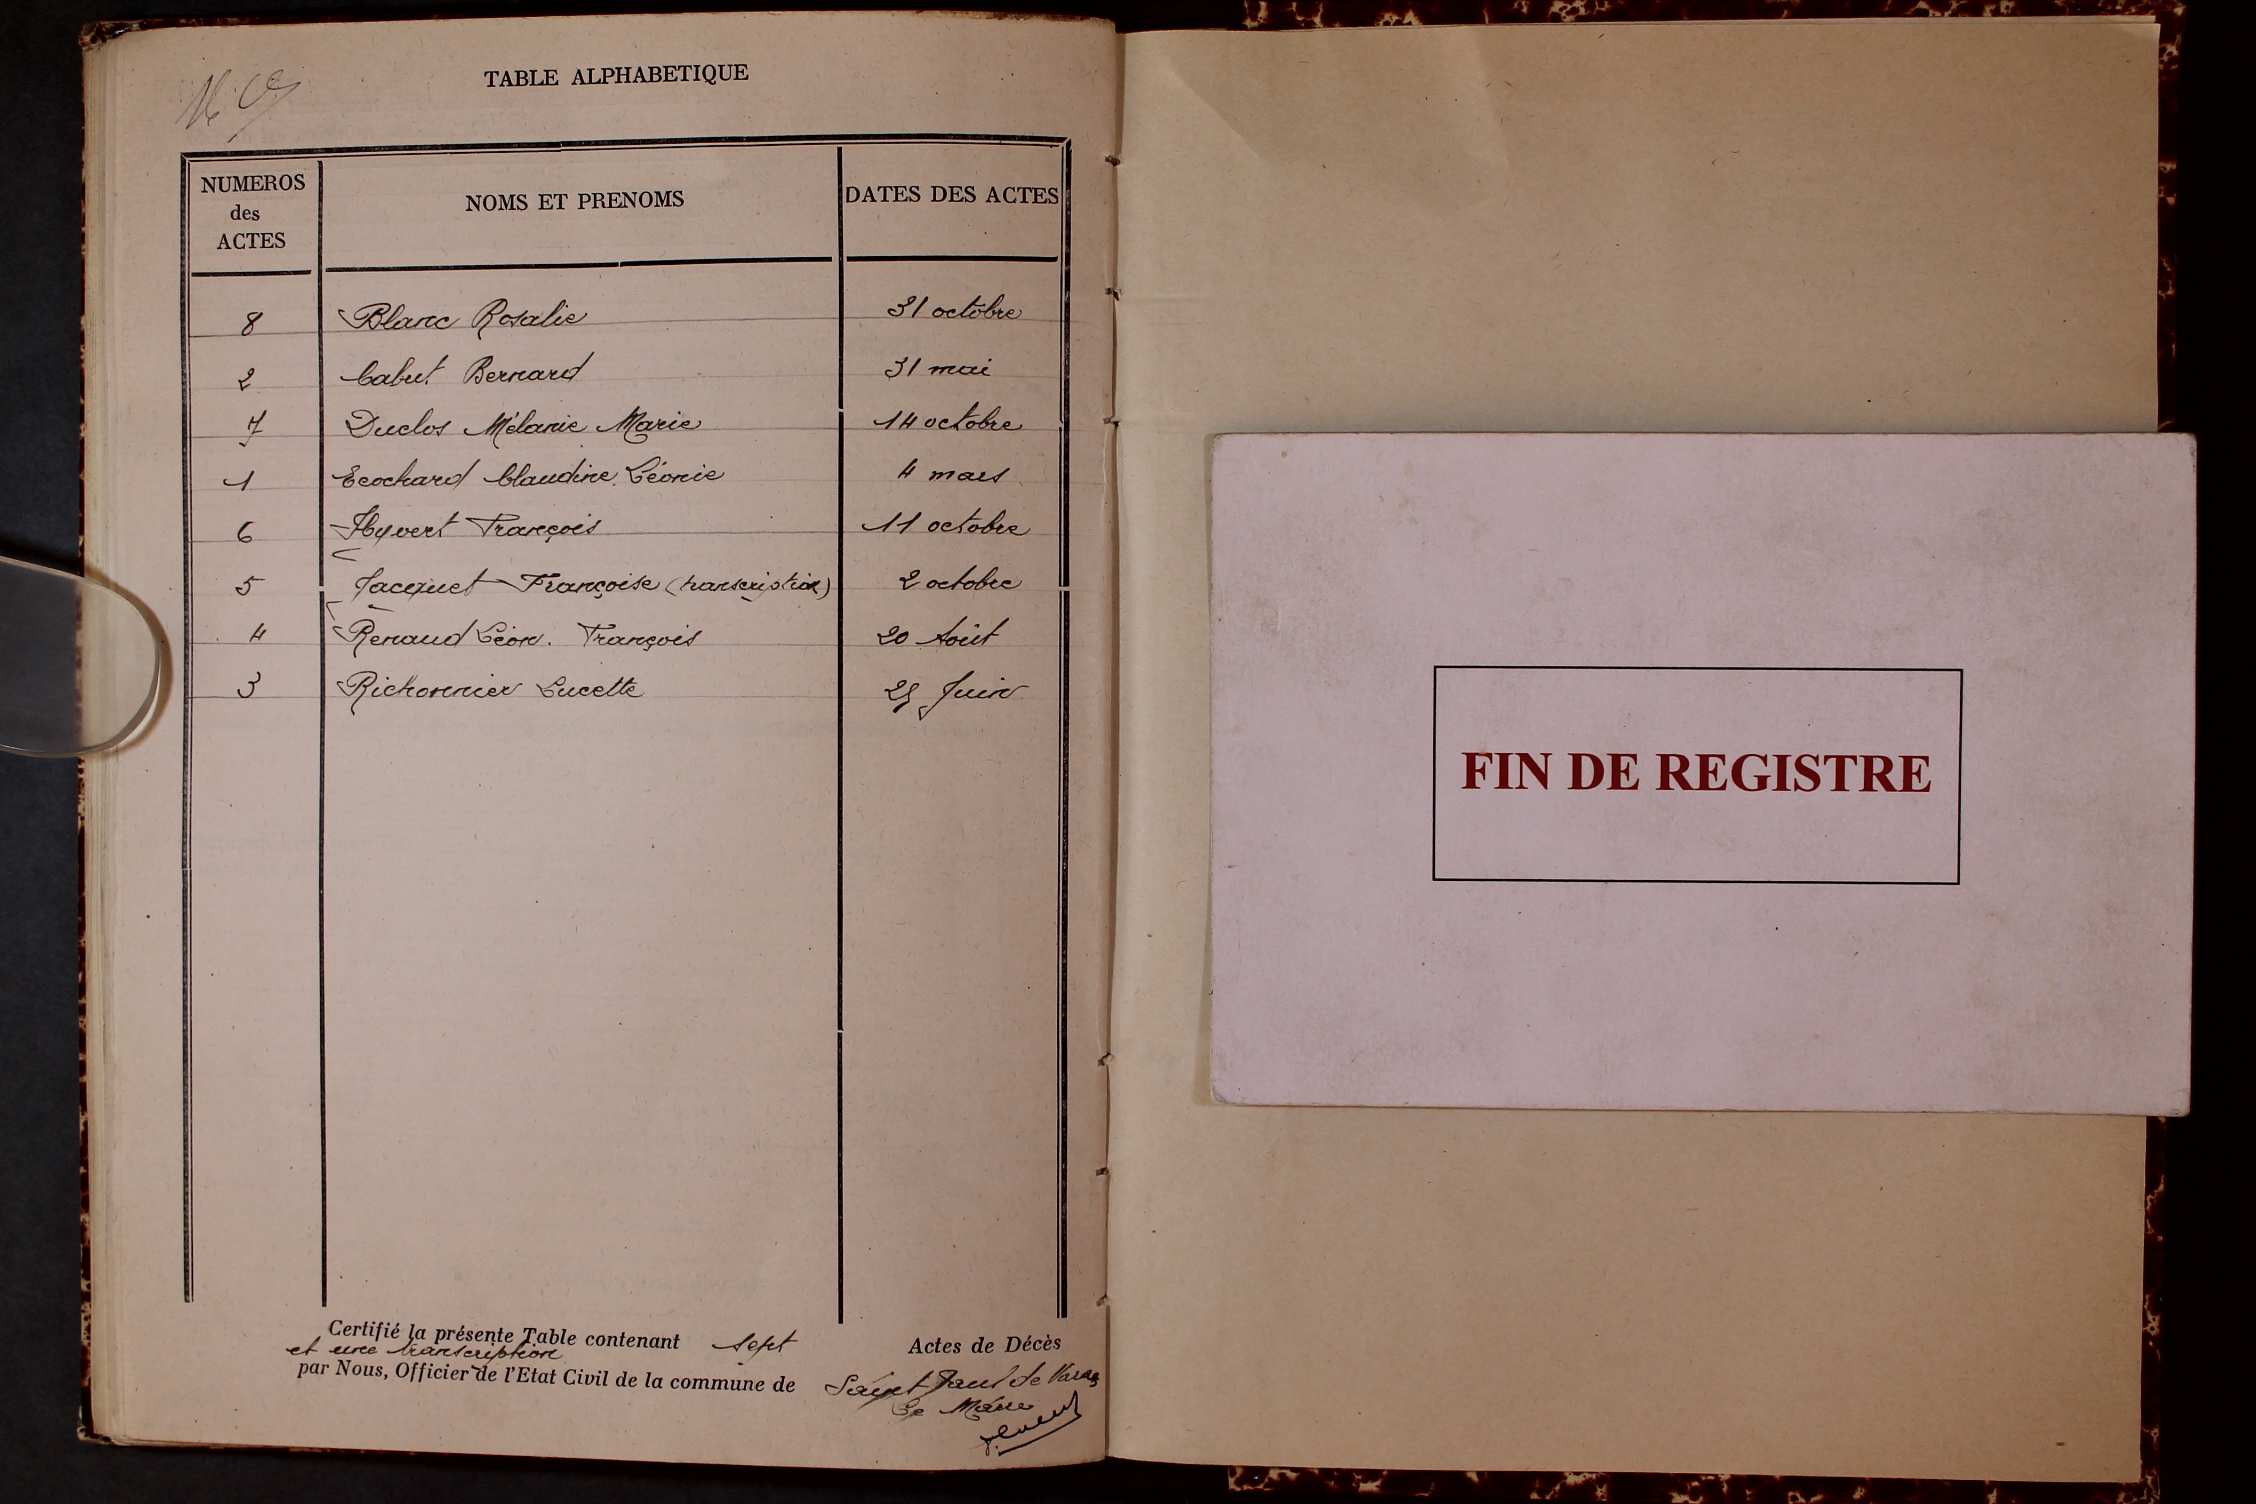 TABLE ALPHABETIQUE
NUMEROS
des
ACTES
NOMS ET PRENOMS
DATES DES ACTES
8 Blanc Rosalie 31 octobre
2 Cabut Bernard 31 mai
7 Duclos Mélanie Marie 14 octobre
1 Ecochard Claudine Léonie 4 mars
6 Hyvert François 11 octobre
5 Jacquet Françoise (transcription) 2 octobre
4 Renaud Léon. François 20 Août
3 Richonnier Lucette Juin
Certifié la présente Table contenant sept Actes de Décès
et une transcription
par Nous, Officier de l'Etat Civil de la commune de Saint Paul de Varax
Le Maire
FIN DE REGISTRE